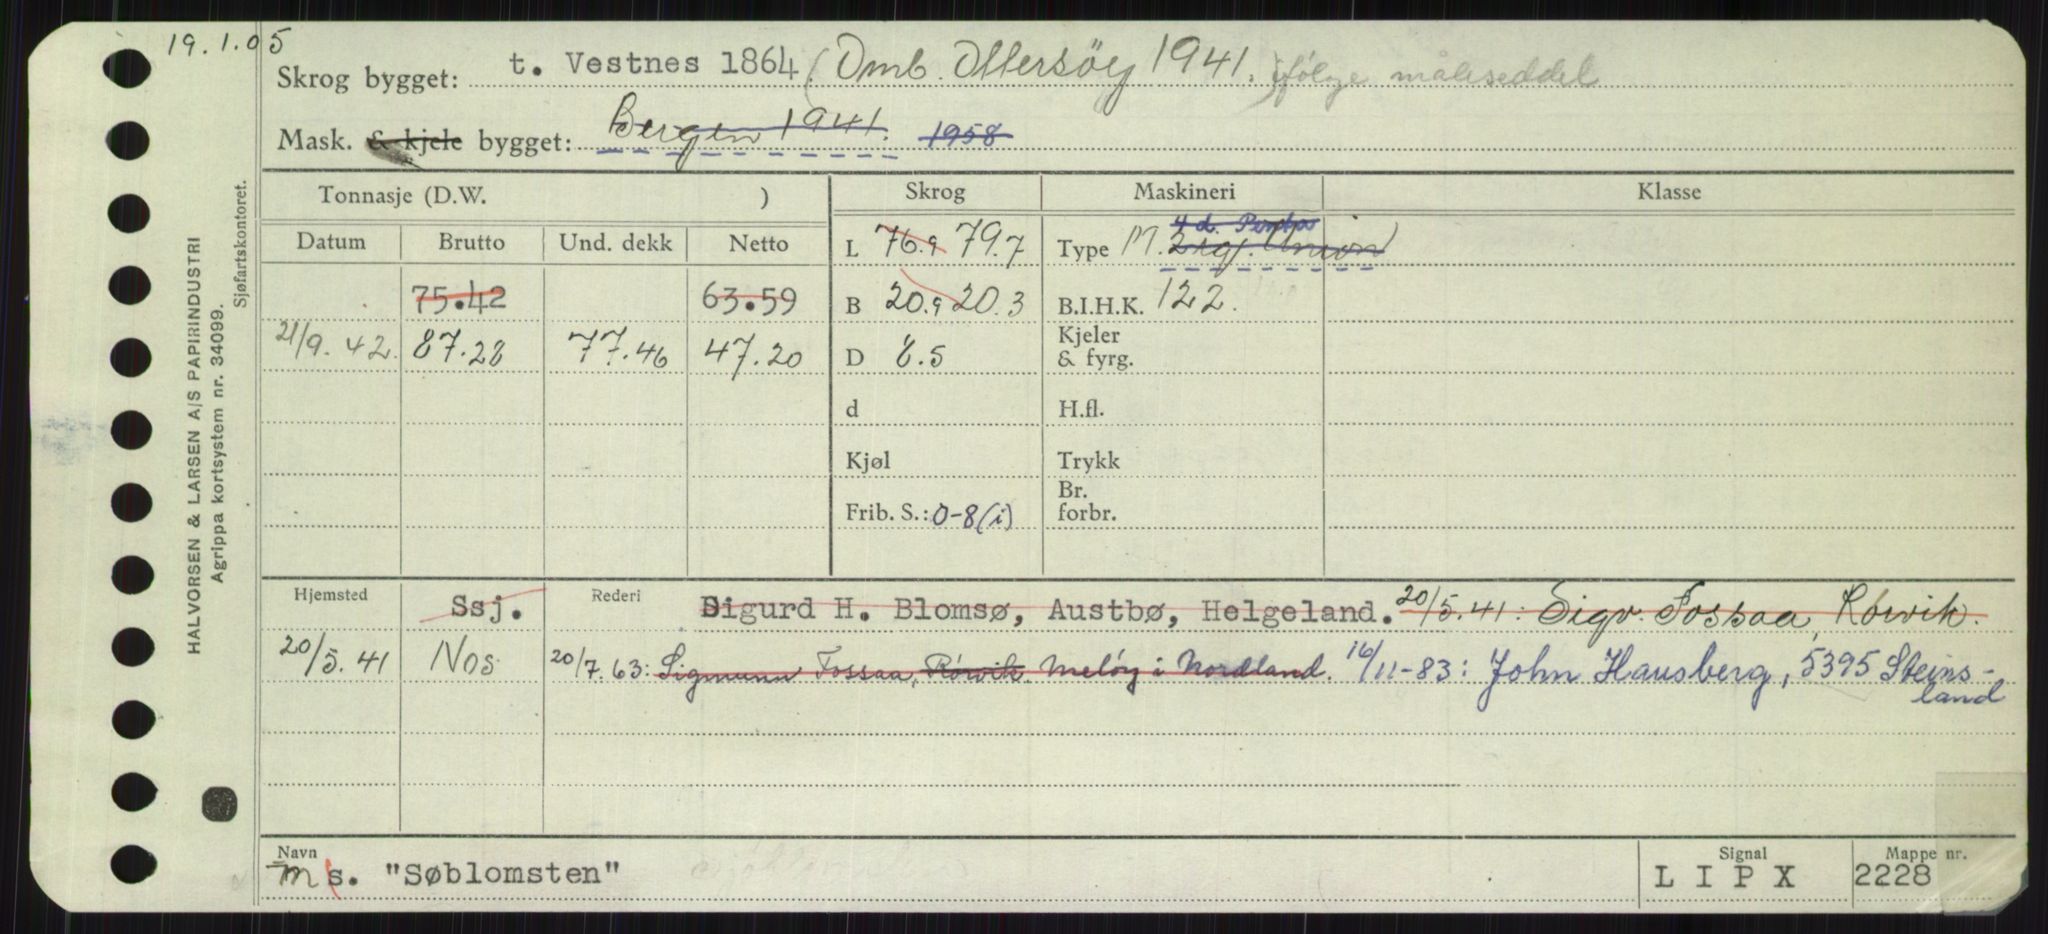 19.1.05
Skrog bygget: t. Vestnes 1864 (Omb. Ottersöy 1941.) ifølge måleseddel
Mask. & kjele bygget: Bergen 1941. 1958
Tonnasje (D.W. ) Skrog Maskineri Klasse
Datum Brutto Und. dekk Netto
L 76.9 79.7 Type M. 2 syl. Union 4 d. Penta
75.42 63.59 B 20.9 20.3 B.I.H.K. 122.
21/9.42. 87.28 77.46 47.20 D 8.5 Kjeler & fyrg.
d H.fl.
Kjøl Trykk
Frib. S.: 0-8(i) Br. forbr.
Hjemsted Ssj. Rederi Sigurd H. Blomsø, Austbø, Helgeland. 20/5.41: Sigv. Fossaa, Rörvik.
20/5.41 Nos 20/7.63: Sigmunn Fossaa, Rörvik. Meløy i Nordland. 16/11-83: John Hausberg, 5395 Steins-
land
Navn Signal Mappe nr.
m s. "Søblomsten" LIPX 2228
HALVORSEN & LARSEN A/S PAPIRINDUSTRI
Agrippa kortsystem nr. 34099.
Sjøfartskontoret.